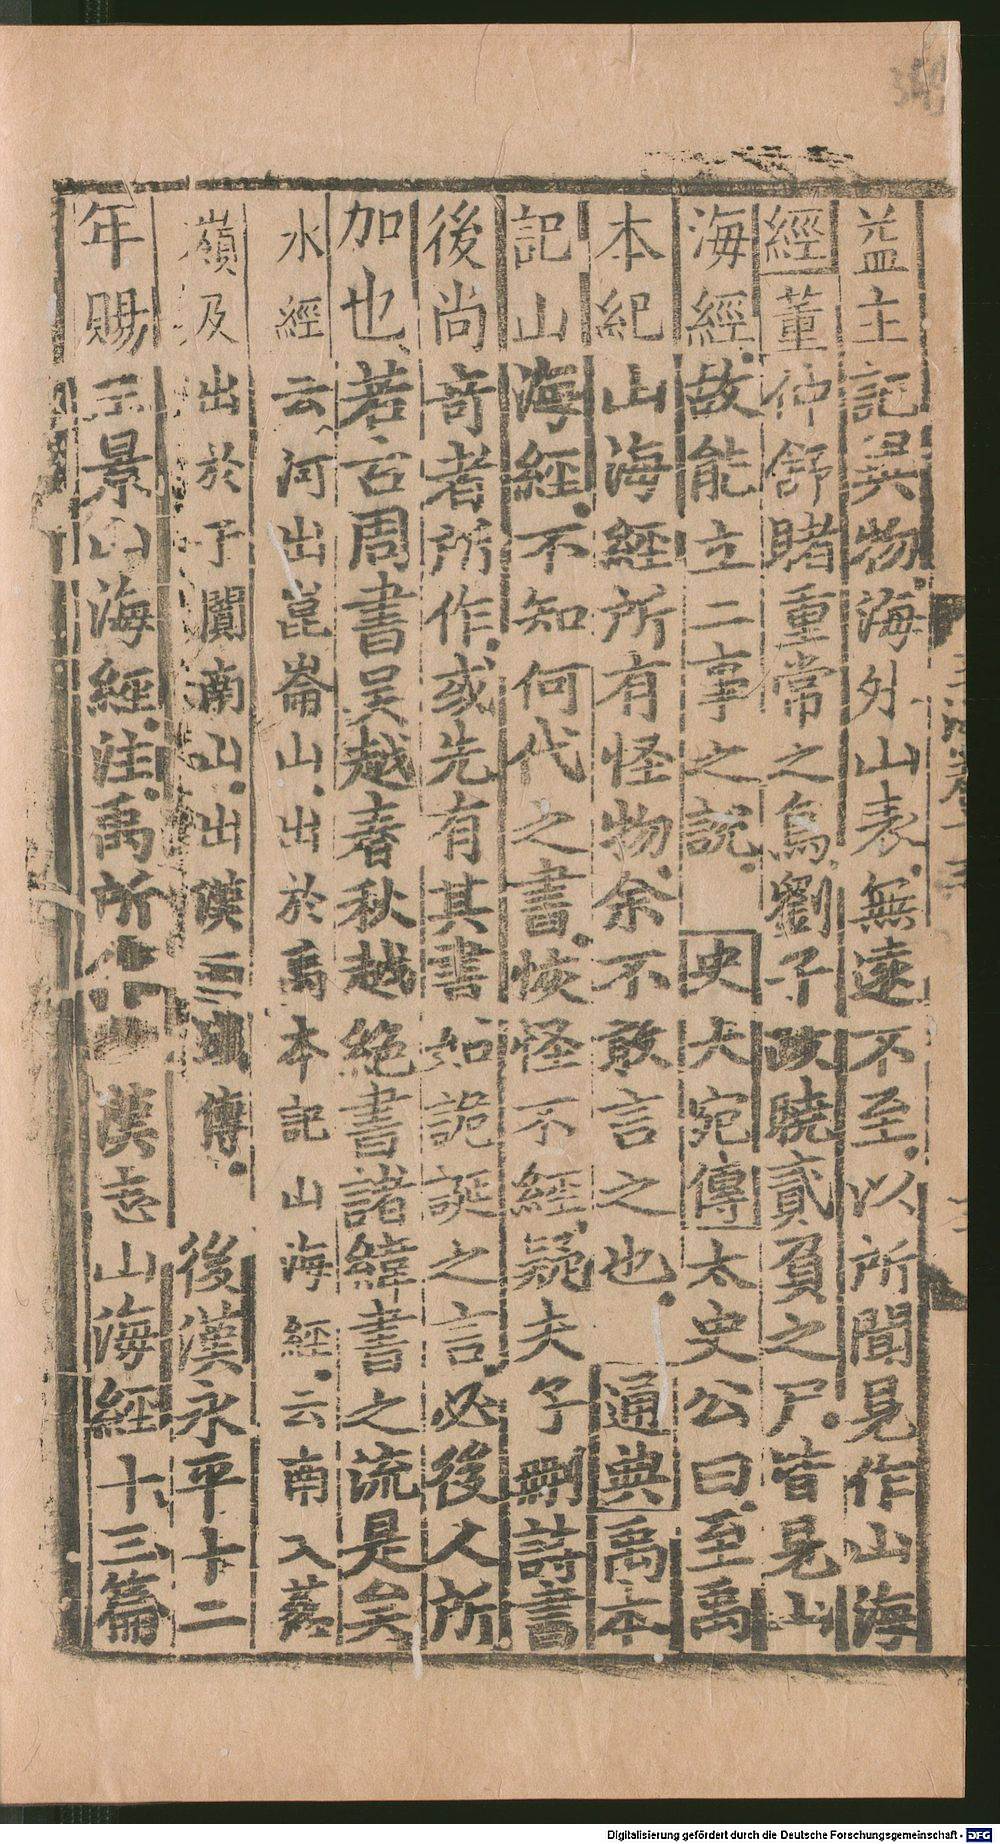 益主記異物海外山表無遠不至以所聞見作山海
經董仲舒睹重常之鳥劉子政曉貳負之尸皆見山
海經故能立二事之說史大宛傳太史公曰至禹
本紀山海經所有怪物余不敢言之也通典禹本
記山海經不知何代之書恢怪不經疑夫子刪詩書
後尚竒者所作或先有其書如詭誕之言必後人所
加也若古周書吳越春秋越絶書諸緯書之流是矣
水經云河出崑崙山出於禹本記山海經云南入葱
嶺及出於于闐南山出漢西域傳後漢永平十二
年賜王景山海經注禹所 漢志山海經十三篇
Digitalisierung gefördert durch die Deutsche Forschungsgemeinschaft - DFG